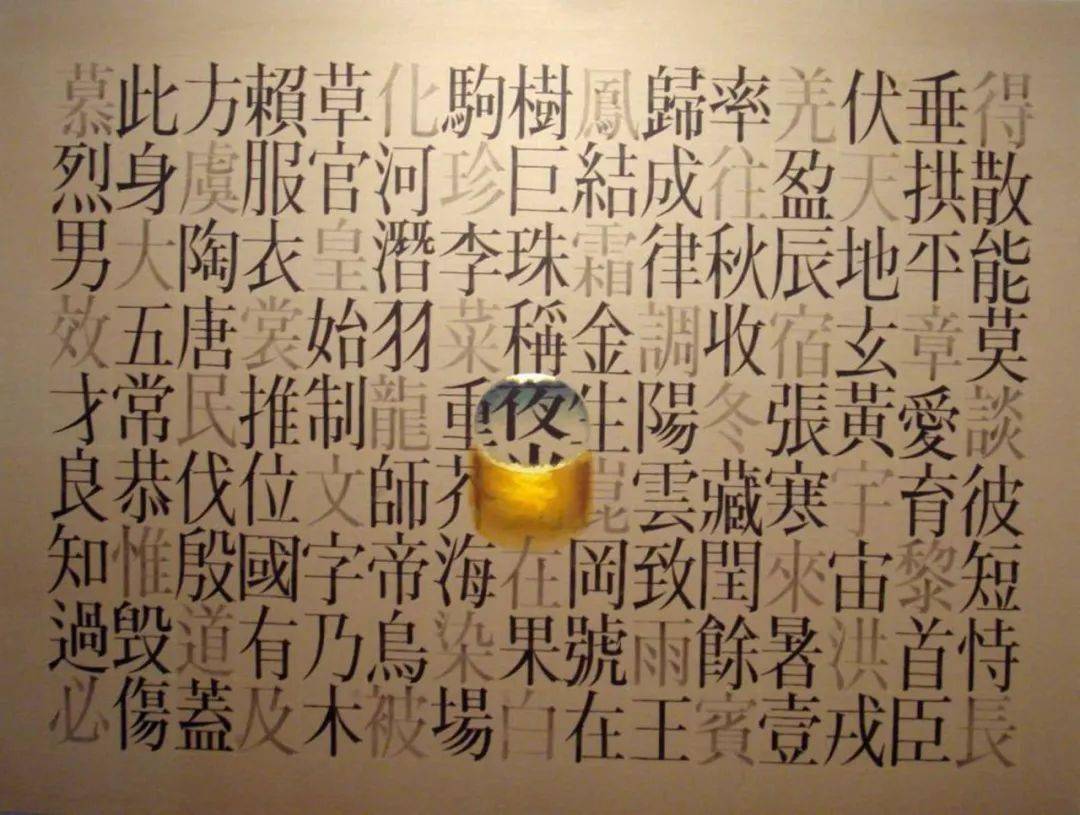 得散能莫談彼短恃長
垂拱平章愛育黎首臣
伏天地玄黃宇宙洪戎
羌盈辰宿張寒來暑壹
率往秋收冬藏閏餘賓
歸成律調陽雲致雨王
鳳結霜金生崑岡號在
樹巨珠稱夜在果白
駒珍李菜重芥海染場
化河潛羽龍師帝鳥被
草官皇始制文字乃木
賴服衣裳推位國有及
方虞陶唐民伐殷道蓋
此身大五常恭惟毀傷
慕烈男效才良知過必